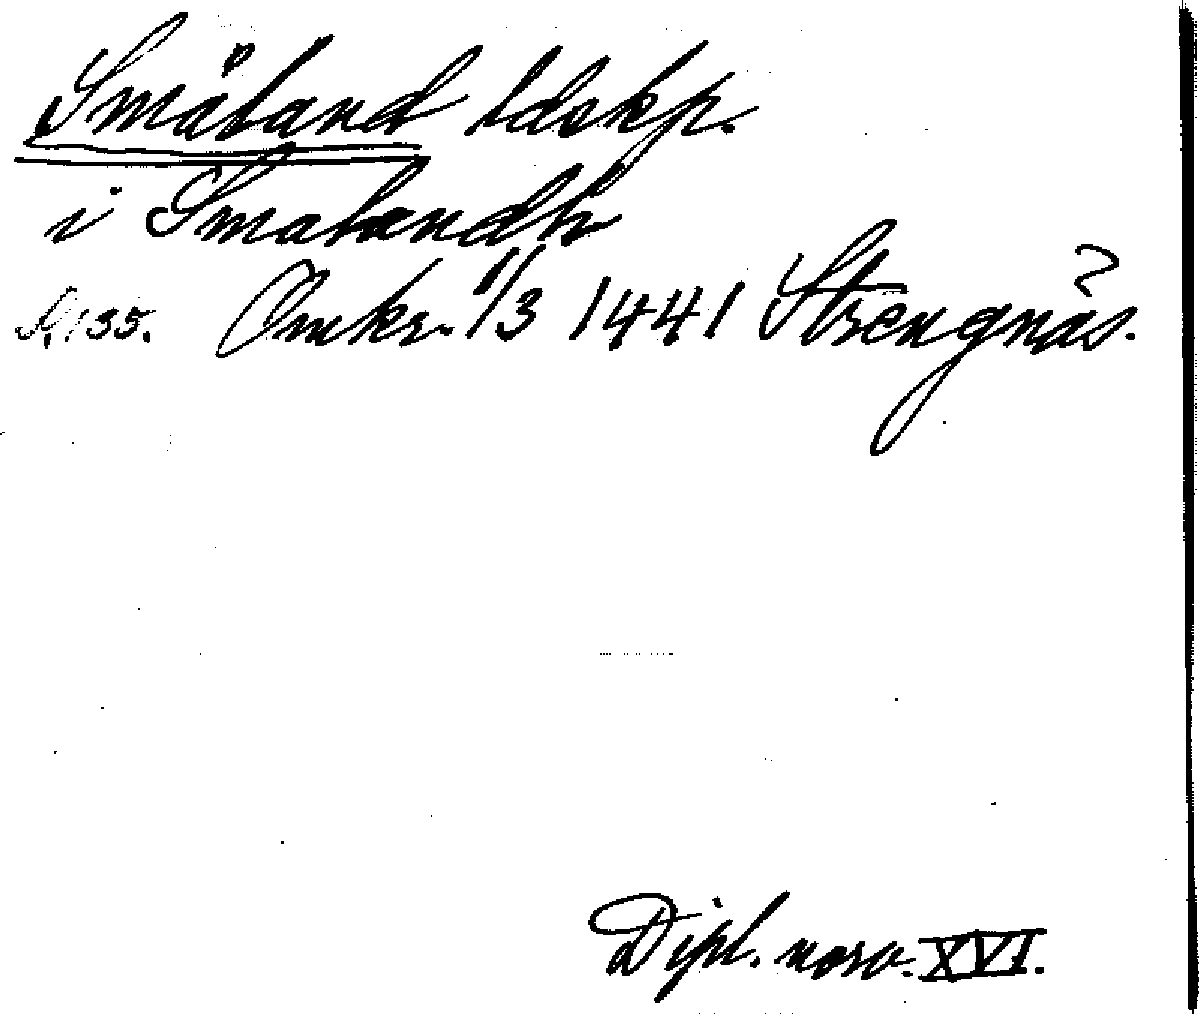 Småland ldskp.
i Smalandh
S. 135. Omkr. 1/3 1441 Strengnäs.
Dipl. norv. XVI.